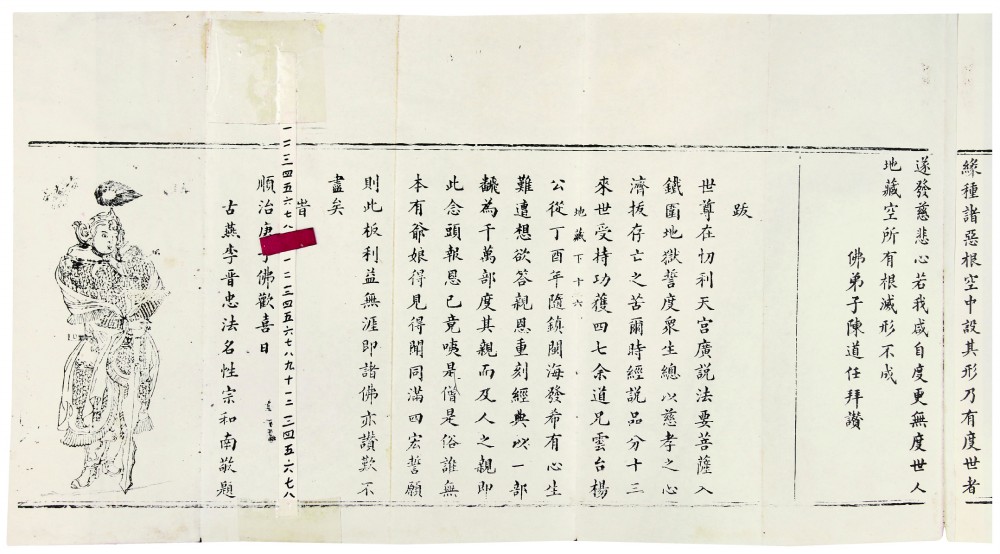 緣種諸惡根空中設其形乃有度世者
遂發慈悲心若我咸自度更無度世人
地藏空所有根滅形不成
佛弟子陳道任拜讃
跋
世尊在忉利天宮廣說法要菩薩入
鐵圍地獄誓度衆生總以慈孝之心
濟拔存亡之苦爾時經說品分十三
來世受持功獲四七余道兄雲台楊
地藏下十六
公從丁酉年隨鎮閩海發希有心生
難遭想欲答親恩重刻經典以一部
飜為千萬部度其親而及人之親即
此念頭報恩已竟咦是僧是俗誰無
本有爺娘得見得聞同滿四宏誓願
則此板利益無涯即諸佛亦讃歎不
盡矣
旹
一二三四五六七八一二三四五六七八九十一二三四五六七八
順治庚佛歡喜日
古燕李晋忠法名性宗和南敬題